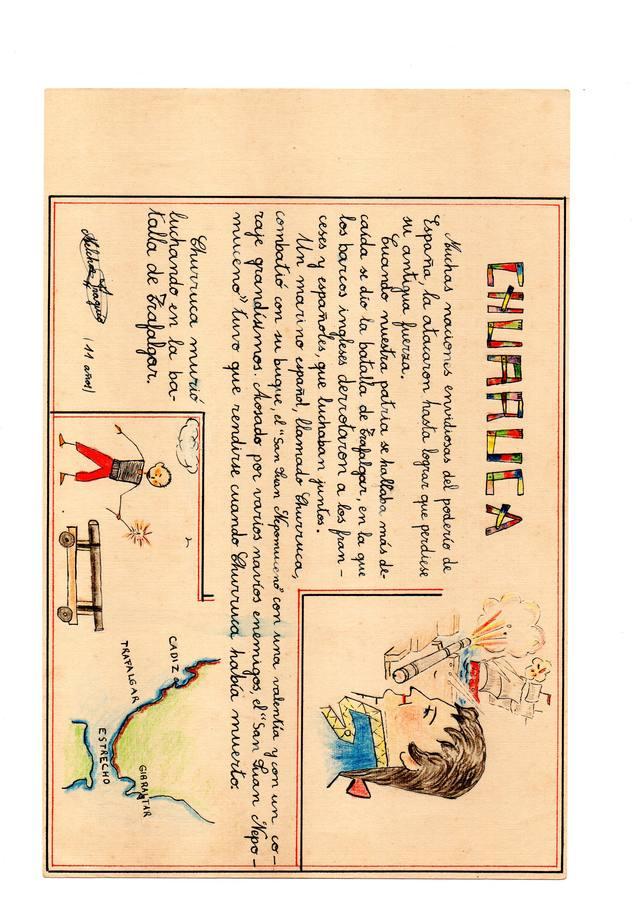 CHURRUCA
Muchas naciones envidiosas del poderío de
España, la atacaron hasta lograr que perdiese
su antigua fuerza.
Cuando nuestra patria se hallaba más de-
caída se dió la batalla de Trafalgar, en la que
los barcos ingleses derrotaron a los fran-
ceses y españoles, que luchaban juntos.
Un marino español, llamado Churruca,
combatió con su buque, el "San Juan Nepomuceno" con una valentía y con un co-
raje grandísimos. Acosado por varios navíos enemigos, el "San Juan Nepo-
muceno" tuvo que rendirse cuando Churruca había muerto.
Churruca murió
luchando en la ba-
talla de Trafalgar.
(11 años)
CADIZ
TRAFALGAR
ESTRECHO
GIBRALTAR